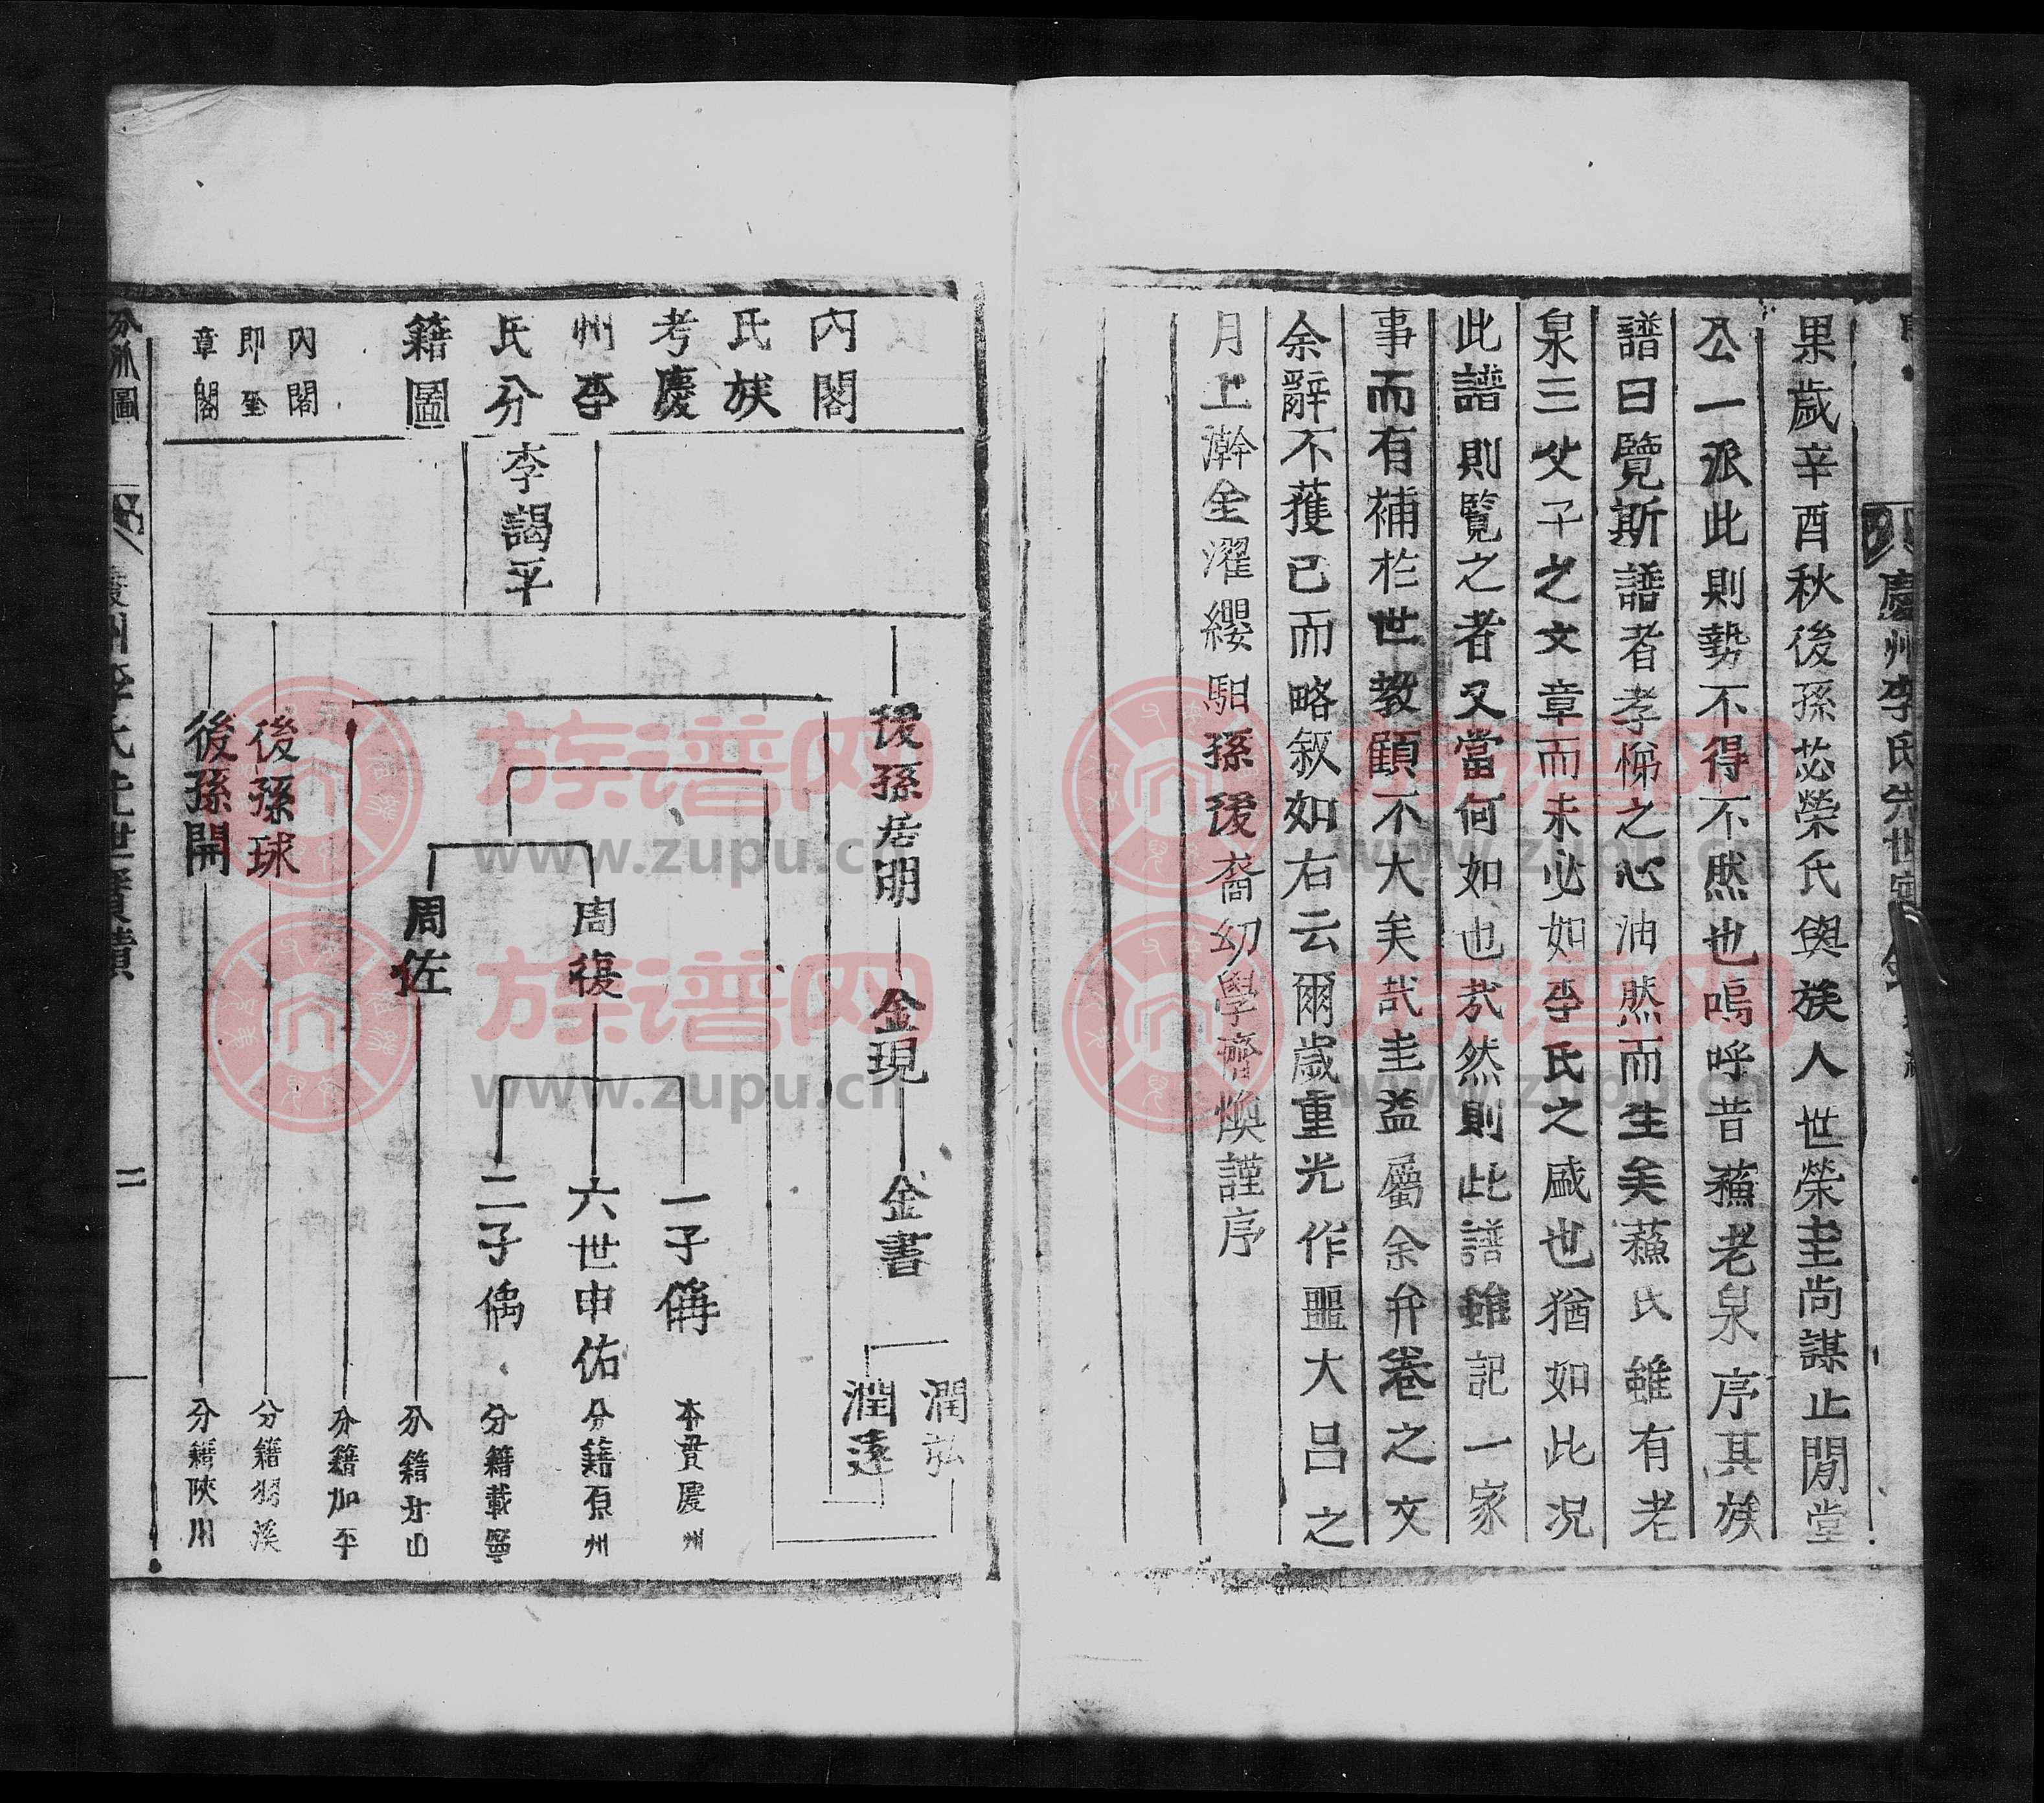 慶州李氏先世實
果歲辛酉秋後孫苾榮氏與族人世榮圭尚謀止閒堂
公一派此則勢不得不然也嗚呼昔蘓老泉序其族
譜曰覽斯譜者孝悌之心油然而生矣蘓氏雖有老
泉三父子之文章而未必如李氏之盛也猶如此况
此譜則覽之者又當何如也㢤然則此譜雖記一家
事而有補於世教顧不大矣㢤圭益屬余弁卷之文
余辭不獲已而略叙如右云爾歲重光作噩大呂之
月上澣全濯纓馹孫後裔幼學齊煥謹序
內閣
氏族
考慶
州李
氏分
籍圖
內閣
即至
章閣
李謁平
後孫居明
金現
金書
潤弘
潤遠
周復
周佐
一子偁
本貫慶州
六世申佑
分籍原州
二子偊
分籍載寧
分籍牙山
分籍加平
後孫球
分籍羽溪
後孫開
分籍陜川
分派圖
慶州李氏先世實蹟
二
族谱网
www.zupu.cn
族谱网
www.zupu.cn
族谱网
www.zupu.cn
族谱网
www.zupu.cn